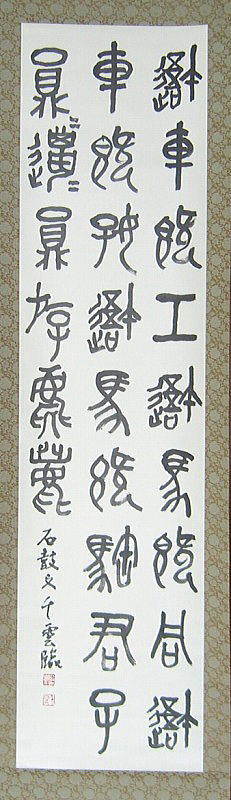 吾車既工吾馬既同吾
車既好吾馬既騊君子
員邋〻員斿麀鹿
石鼓文 千雲臨